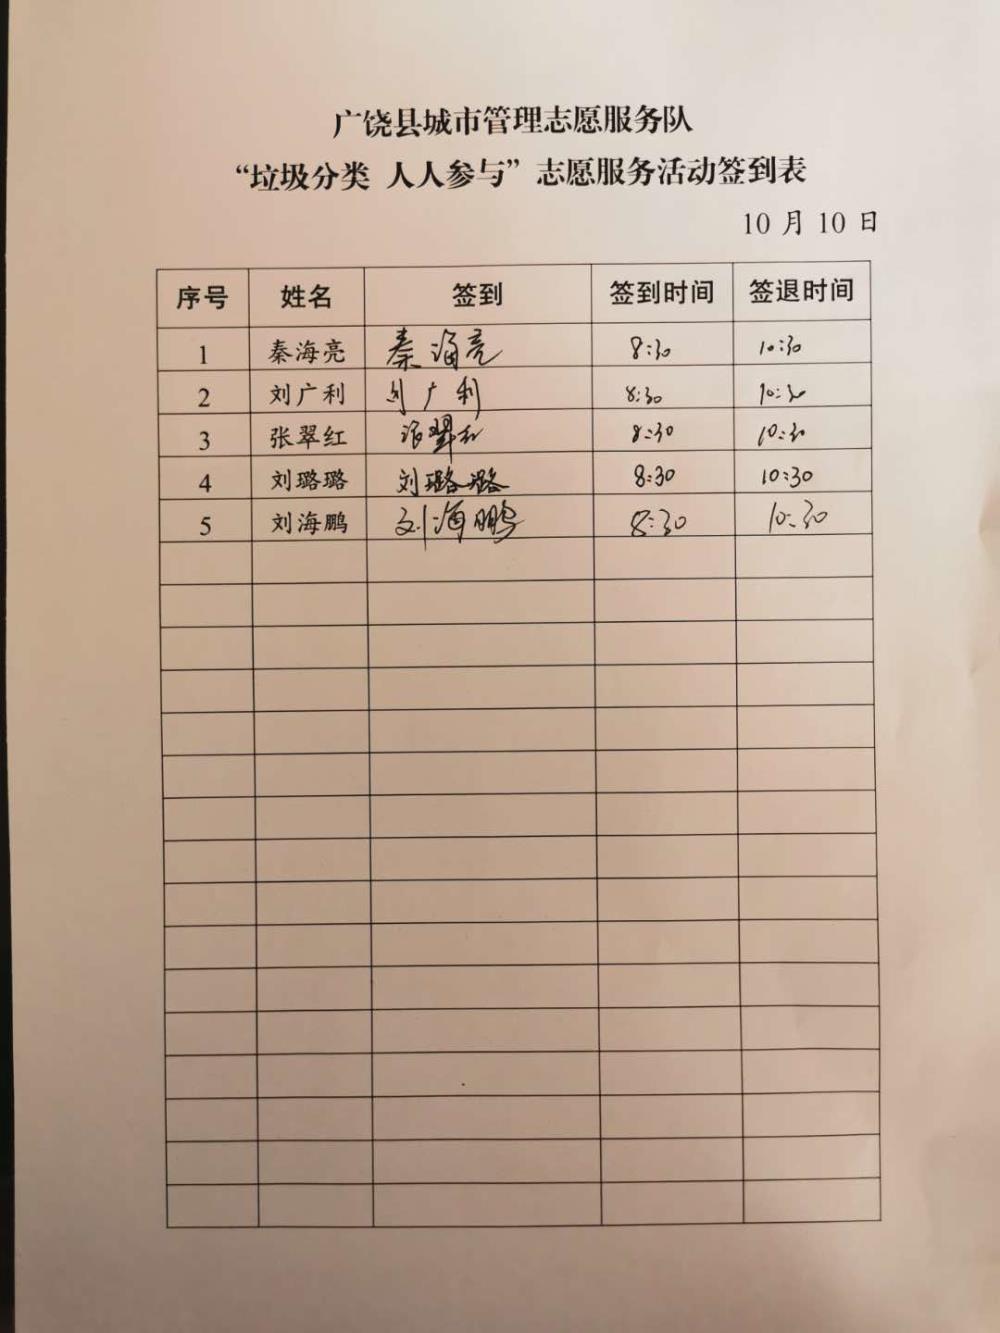 广饶县城市管理志愿服务队
“垃圾分类 人人参与”志愿服务活动签到表
10 月 10 日
序号 姓名 签到 签到时间 签退时间
1 秦海亮 秦海亮 8:30 10:30
2 刘广利 刘广利 8:30 10:30
3 张翠红 张翠红 8:30 10:30
4 刘璐璐 刘璐璐 8:30 10:30
5 刘海鹏 刘海鹏 8:30 10:30